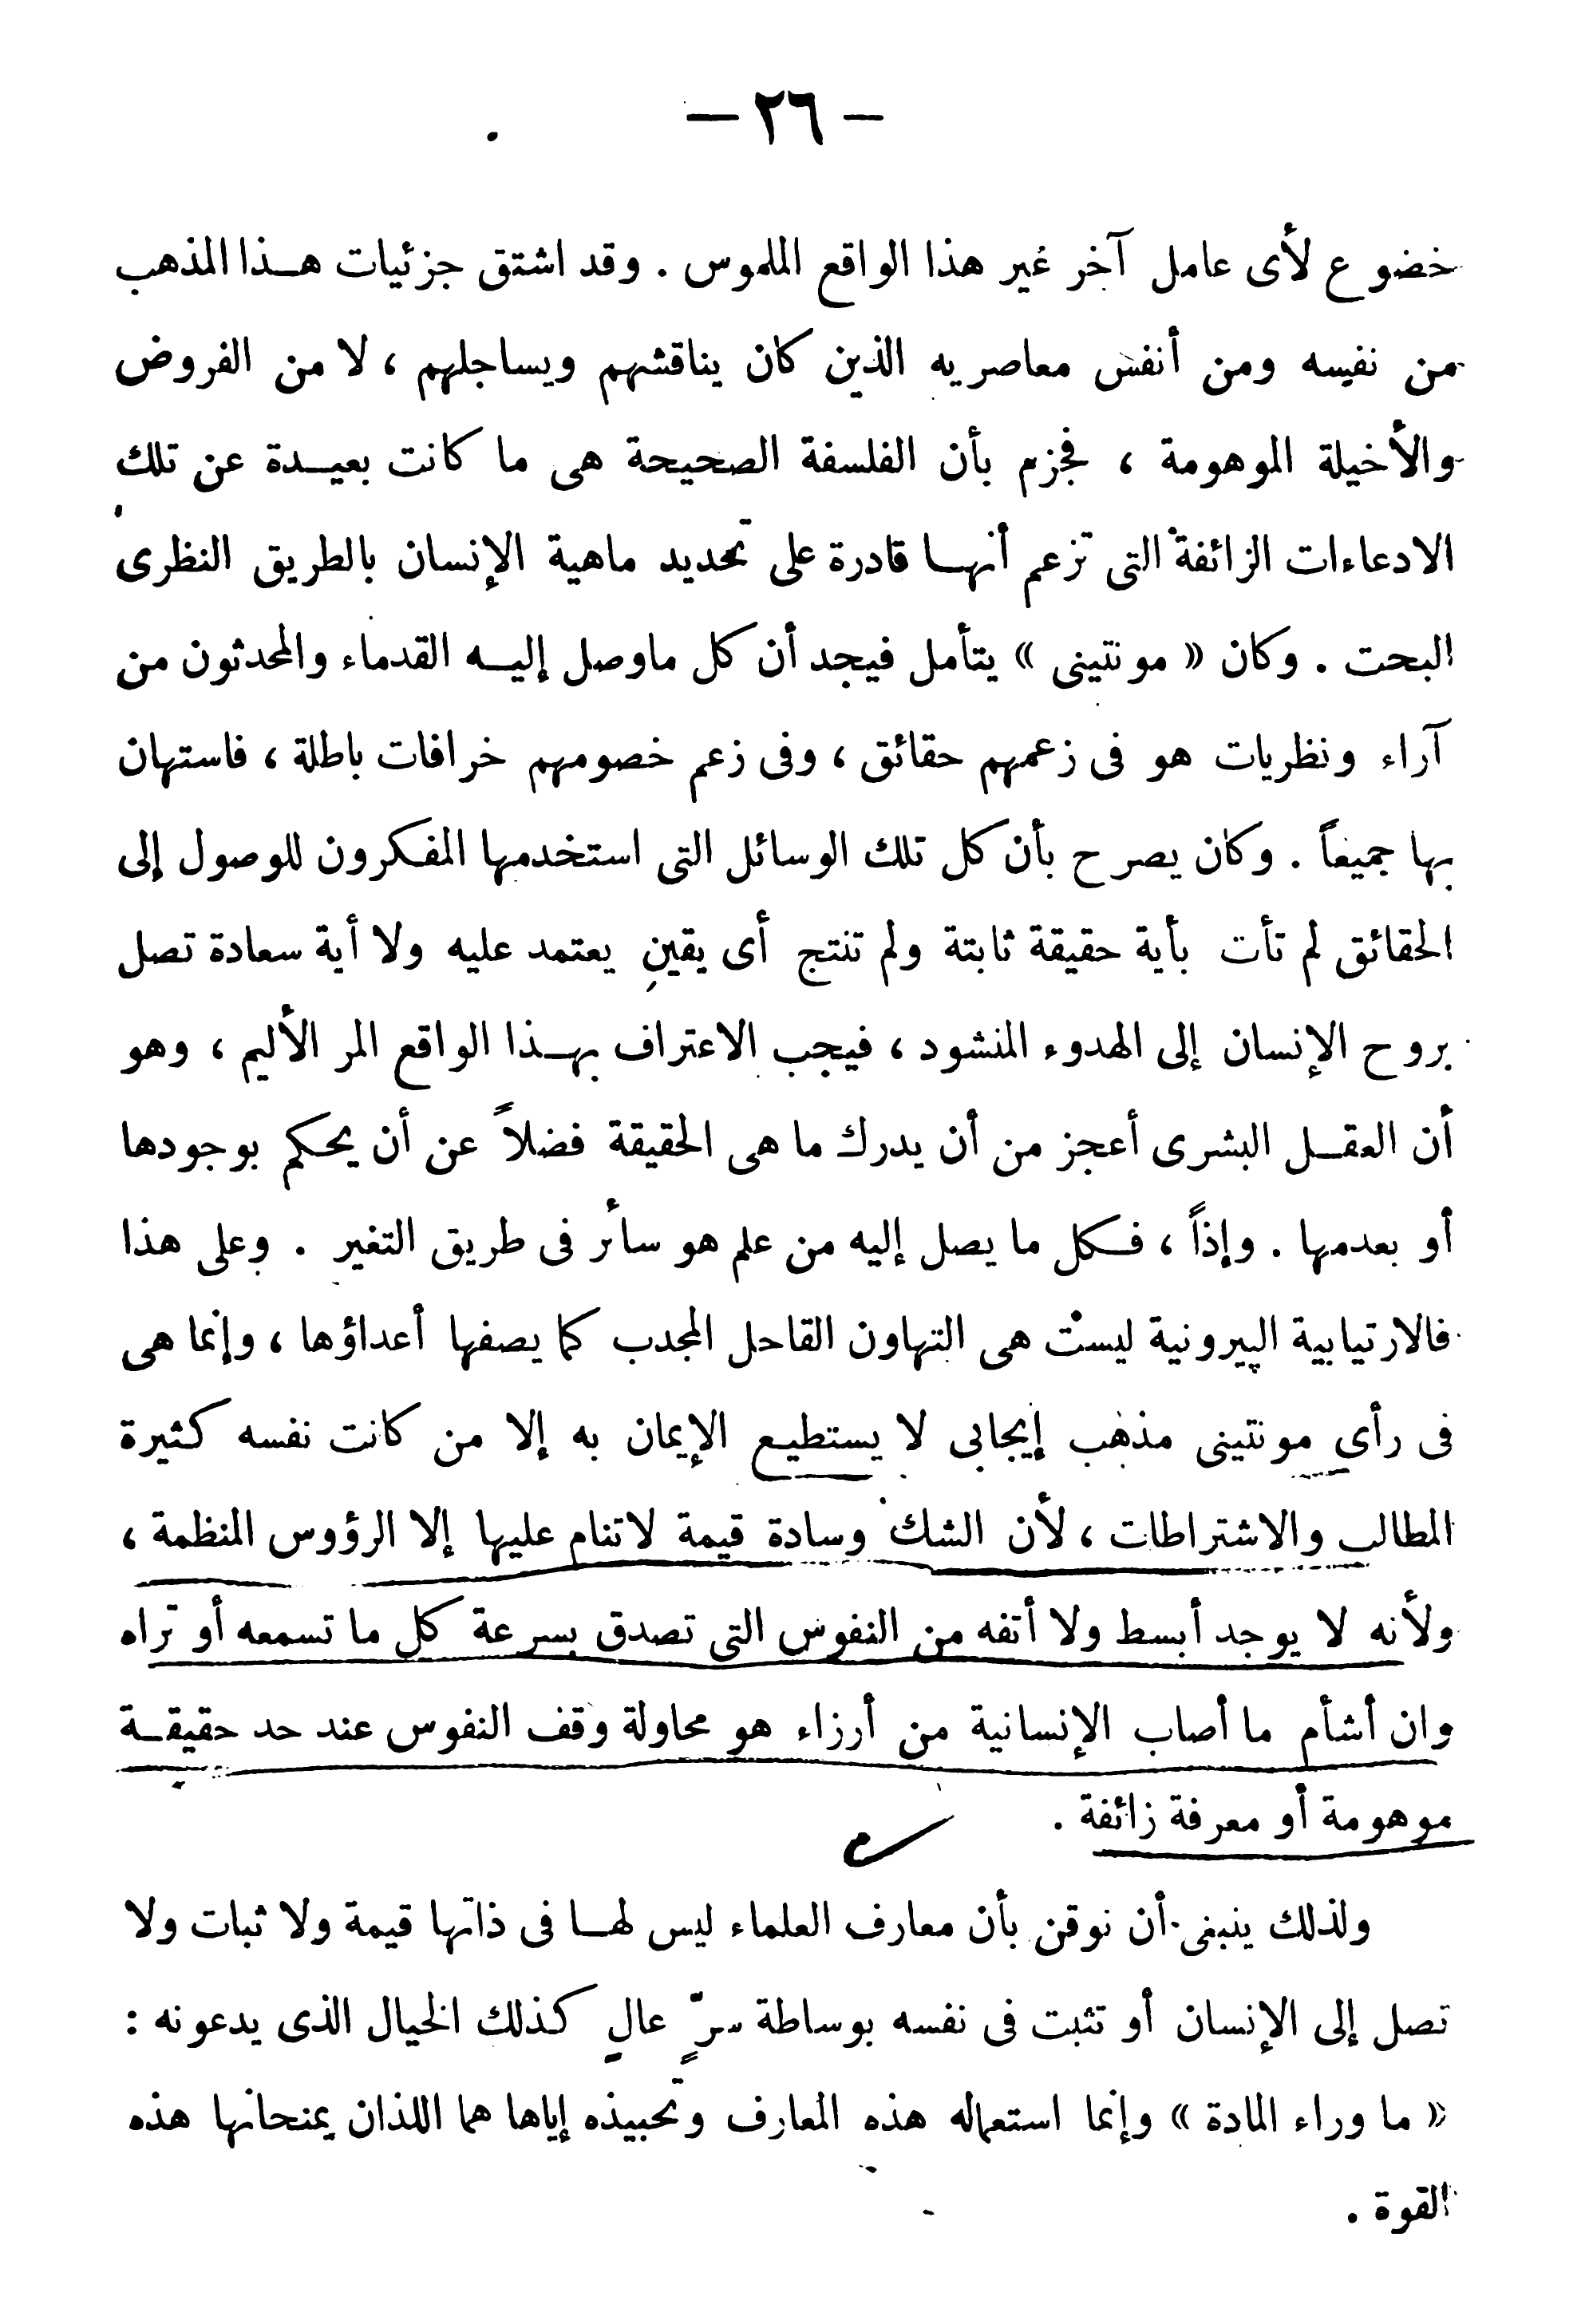 — ٢٦ —
خضوع لأى عامل آخر غير هذا الواقع الملموس . وقد اشتق جزئيات هـذا المذهب
من نفسه ومن أنفس معاصريه الذين كان يناقشهم ويساجلهم ، لا من الفروض
والأخيلة الموهومة ، فجزم بأن الفلسفة الصحيحة هى ما كانت بعيـدة عن تلك
الادعاءات الزائفة التى تزعم أنهـا قادرة على تحديد ماهية الإنسان بالطريق النظرى
البحت . وكان « مونتينى » يتأمل فيجد أن كل ماوصل إليـه القدماء والمحدثون من
آراء ونظريات هو فى زعمهم حقائق ، وفى زعم خصومهم خرافات باطلة ، فاستهان
بها جميعاً . وكان يصرح بأن كل تلك الوسائل التى استخدمها المفكرون للوصول إلى
الحقائق لم تأت بأية حقيقة ثابتة ولم تنتج أى يقين يعتمد عليه ولا أية سعادة تصل
بروح الإنسان إلى الهدوء المنشود ، فيجب الاعتراف بهـذا الواقع المر الأليم ، وهو
أن العقـل البشرى أعجز من أن يدرك ما هى الحقيقة فضلاً عن أن يحكم بوجودها
أو بعدمها . وإذاً ، فـكل ما يصل إليه من علم هو سائر فى طريق التغير . وعلى هذا
فالارتيابية الپيرونية ليست هى التهاون القاحل المجدب كما يصفها أعداؤها ، وإنما هى
فى رأى مونتينى مذهب إيجابى لا يستطيع الإيمان به إلا من كانت نفسه كثيرة
المطالب والاشتراطات ، لأن الشك وسادة قيمة لاتنام عليها إلا الرؤوس المنظمة ،
ولأنه لا يوجد أبسط ولا أتفه من النفوس التى تصدق بسرعة كل ما تسمعه أو تراه
وان أشأم ما أصاب الإنسانية من أرزاء هو محاولة وقف النفوس عند حد حقيقـة
موهومة أو معرفة زائفة .
ولذلك ينبغى أن نوقن بأن معارف العلماء ليس لهـا فى ذاتها قيمة ولا ثبات ولا
تصل إلى الإنسان أو تثبت فى نفسه بوساطة سرٍّ عالٍ كذلك الخيال الذى يدعونه :
« ما وراء المادة » وإنما استعماله هذه المعارف وتحبيذه إياها هما اللذان يمنحانها هذه
القوة .